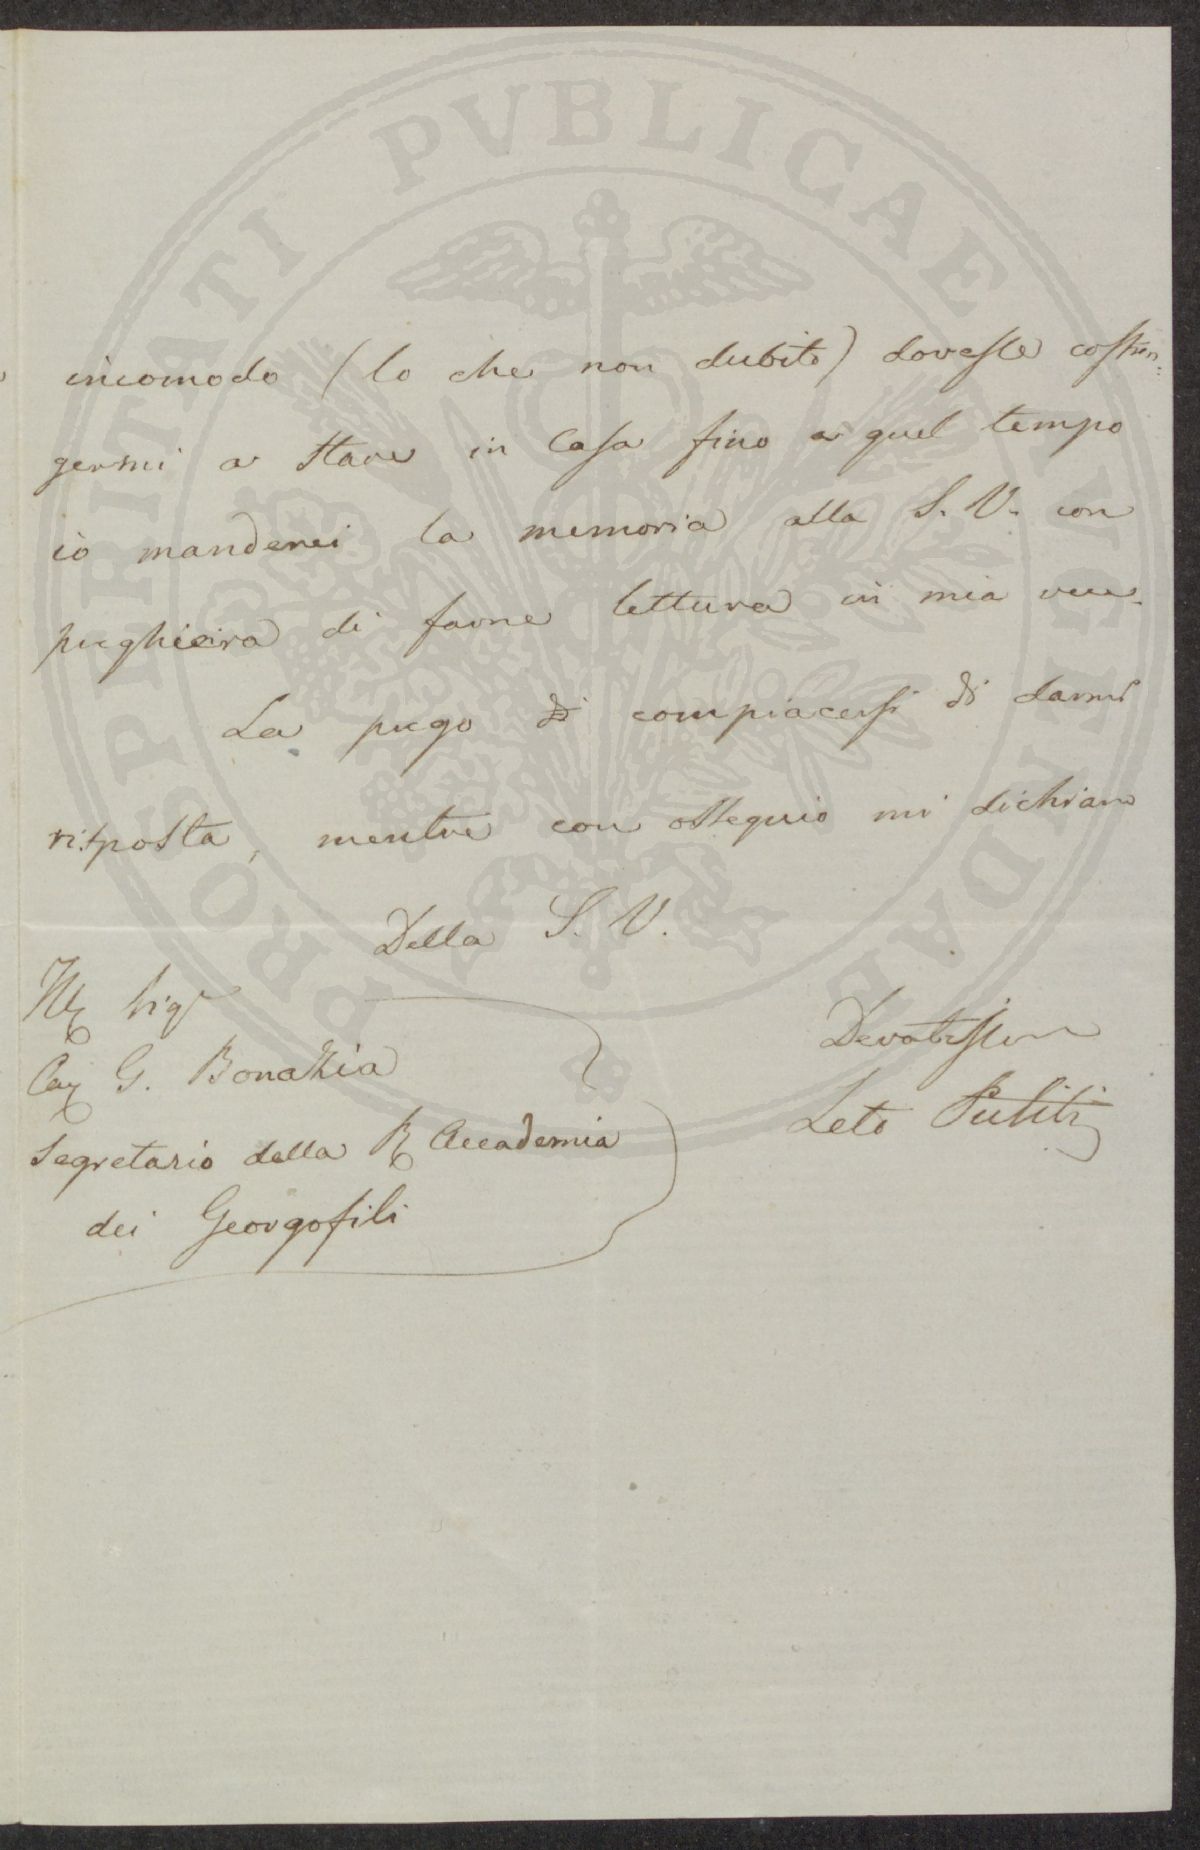 PROSPERITATI PVBLICAE AVGENDAE
incomodo (lo che non dubito) dovesse costrin:
germi a stare in Casa fino a quel tempo
io manderei la memoria alla S. V. con
preghiera di farne lettura in mia vece.
La prego di compiacersi di darmi
risposta, mentre con ossequio mi dichiaro
Della S. V.
Ill Sigr
Cav G. Bonazzia
Segretario della R Accademia
dei Georgofili
Devotissimo
Leto Puliti